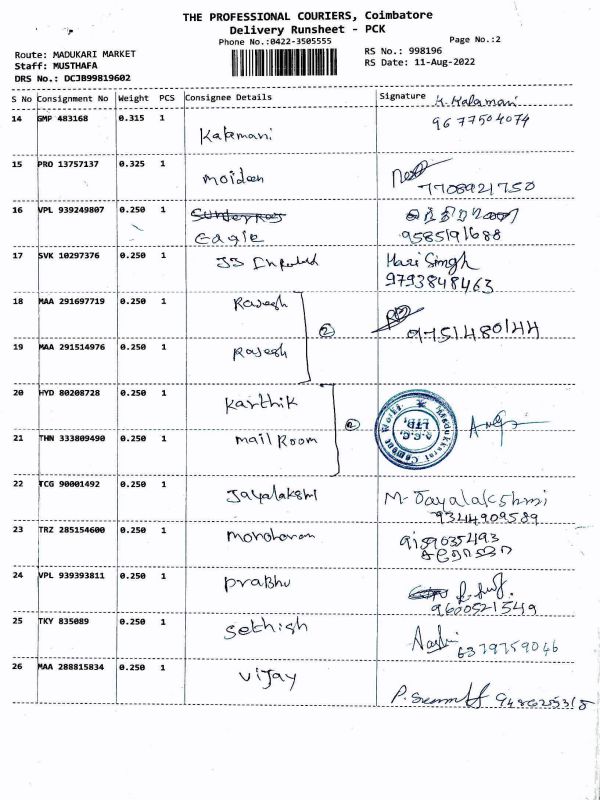 THE PROFESSIONAL COURIERS, Coimbatore
Delivery Runsheet - PCK
Phone No.:0422-3505555
Page No.:2
Route: MADUKARI MARKET
RS No.: 998196
Staff: MUSTHAFA
RS Date: 11-Aug-2022
DRS No.: DCJB99819602
S No Consignment No Weight PCS Consignee Details Signature
K. Kalamani
14 GMP 483168 0.315 1 Kalamani 9677504074
15 PRO 13757137 0.325 1 moideen 7708921750
16 VPL 939249807 0.250 1 Sunderraj
Eagle 9585191688
17 SVK 10297376 0.250 1 JS Hari Singh
9793848463
18 MAA 291697719 0.250 1 Rajesh
② 9751480144
19 MAA 291514976 0.250 1 Rajesh
20 HYD 80208728 0.250 1 Karthik
② A.C.C. LTD. Madukkarai Cement Works
21 THN 333809490 0.250 1 Mail Room
22 TCG 90001492 0.250 1 Jayalakshmi M. Jayalakshmi
9344909589
23 TRZ 285154600 0.250 1 manoharan 9159035493
24 VPL 939393811 0.250 1 Prabhu
9600521549
25 TKY 835089 0.250 1 Sethish 6379759046
26 MAA 288815834 0.250 1 Vijay
P.